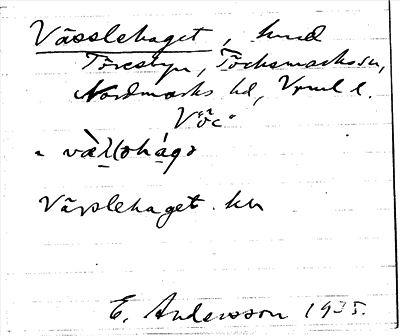 Vässlehaget, hmd
Töresbyn, Töcksmarks sn,
Nordmarks hd, Vrml l.
Väc
Vässlehaget. hm
E. Andersson 1935.